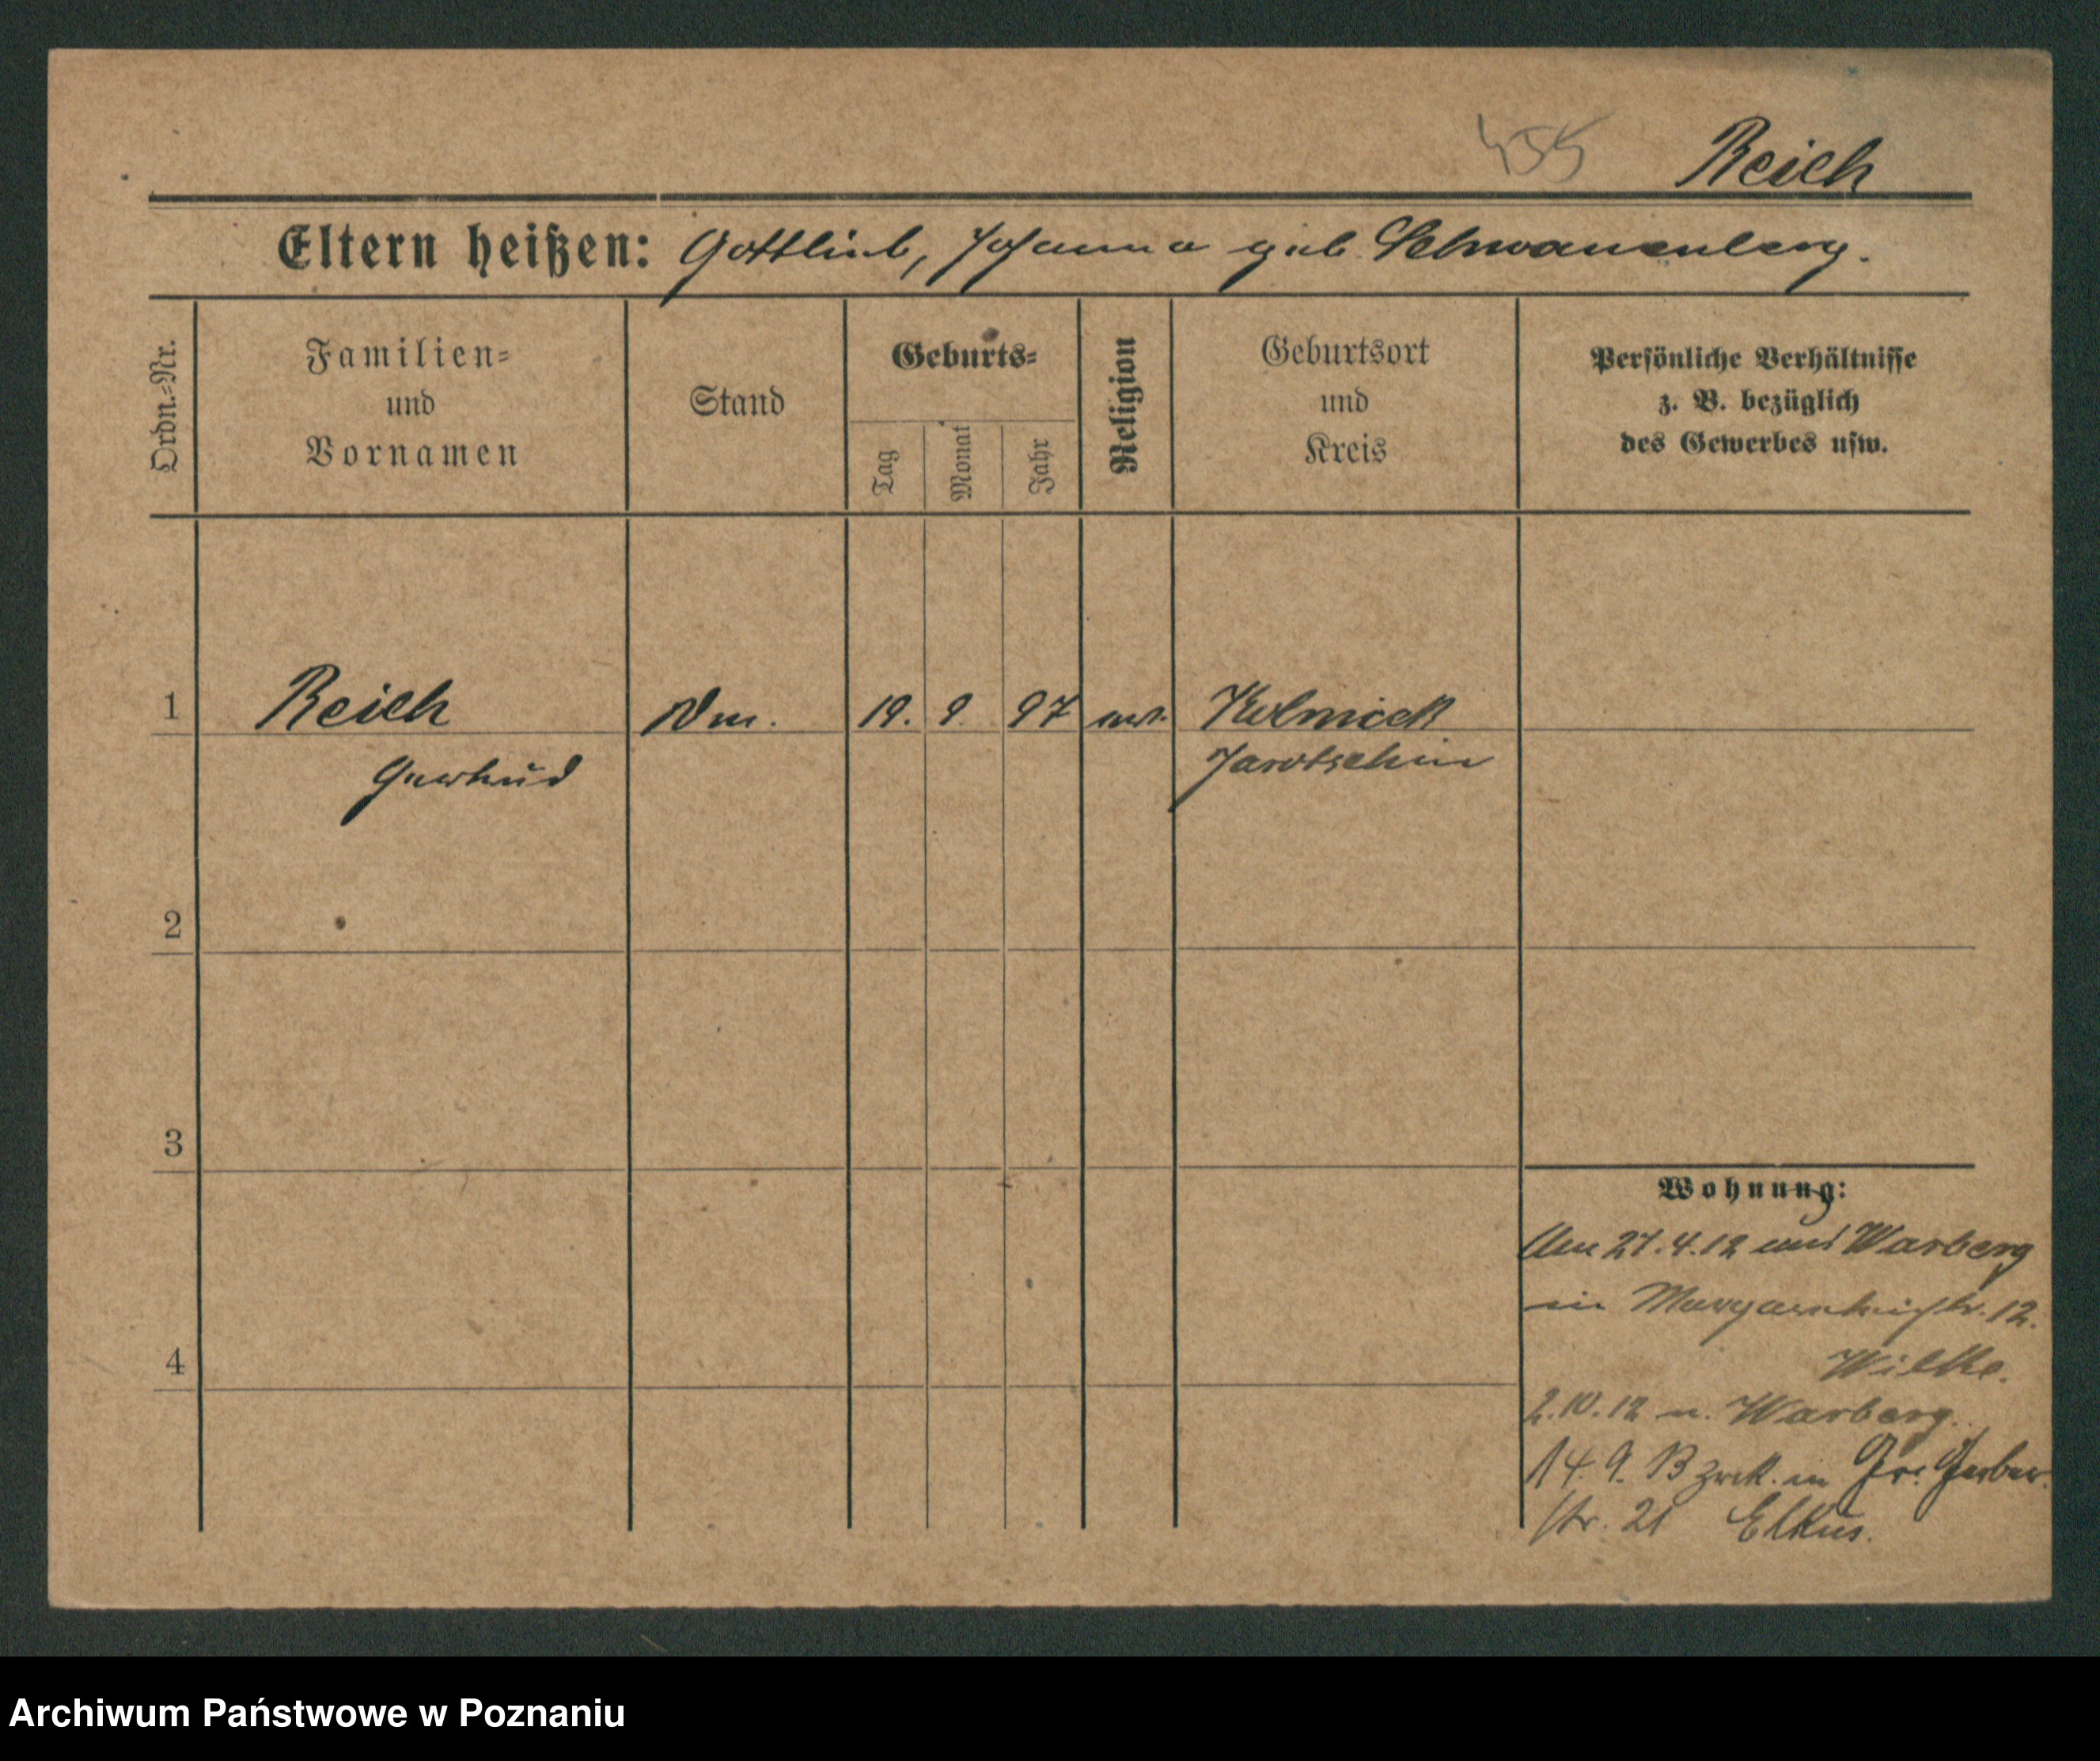 455 Reich
Eltern heißen: Gottlieb, Johanna geb. Schwanenberg.
Ordn.-Nr.
Familien-
und
Vornamen
Stand
Geburts-
Tag
Monat
Jahr
Religion
Geburtsort
und
Kreis
Persönliche Verhältnisse
z. B. bezüglich
des Gewerbes usw.
1 Reich 19. 9. 97 ev.
Gertrud Jarotschin
2
3
4
Wohnung:
27.4.12 Warberg
in Margarethenstr. 12.
Wilke.
2.10.12 n. Warberg.
14.9.13 zurk. in Gr. Gerber-
str. 21 Elkus.